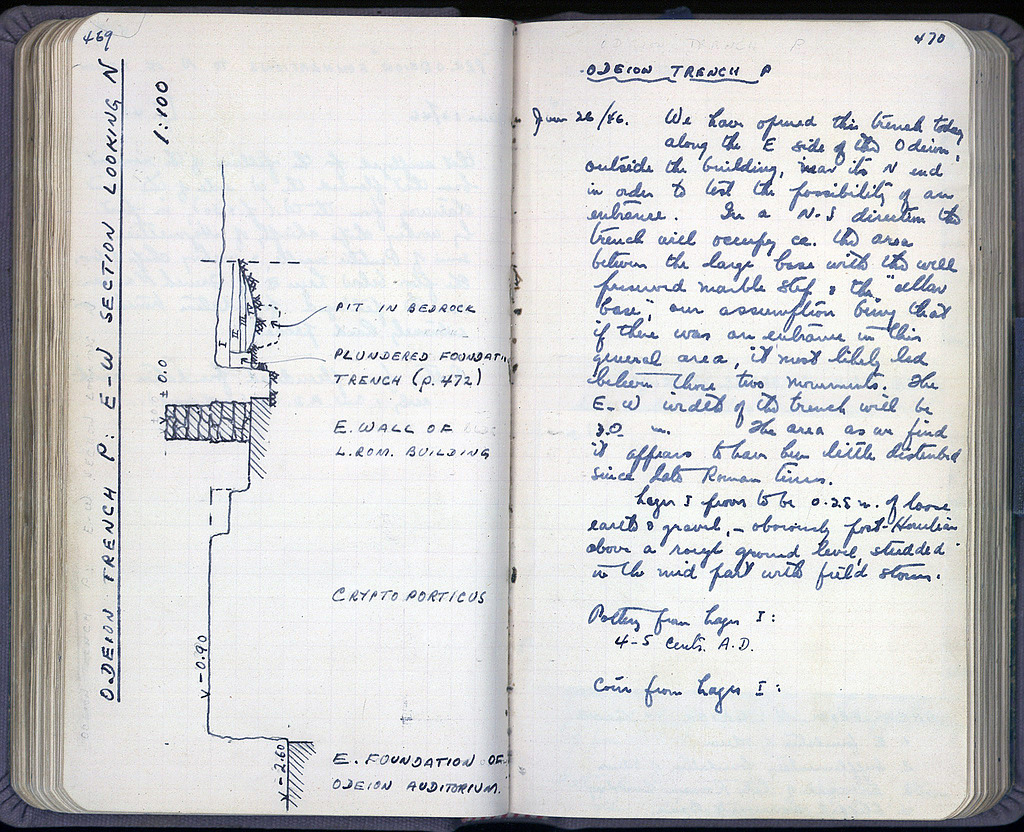 469
ODEION TRENCH P: E-W SECTION LOOKING N
1:100
I II III IV
V
PIT IN BEDROCK
PLUNDERED FOUNDATION
TRENCH (p. 472)
V ± 0.0
E. WALL OF
L. ROM. BUILDING
CRYPTOPORTICUS
V -0.90
V -2.60
E. FOUNDATION OF
ODEION AUDITORIUM.
470
ODEION TRENCH P
ODEION TRENCH P
June 26/46. We have opened this trench today
along the E side of the Odeion,
outside the building, near its N end
in order to test the possibility of an
entrance. In a N-S direction the
trench will occupy ca. the area
between the large base with the well
preserved marble step & the "altar
base", our assumption being that
if there was an entrance in this
general area, it most likely led
between these two monuments. The
E-W width of the trench will be
3.0 m. The area as we find
it appears to have been little disturbed
since late Roman times.
Layer I proves to be 0.25 m. of loose
earth & gravel, - obviously post-Herulian
above a rough ground level, studded
in the mid part with field stones.
Pottery from Layer I:
4-5 cents. A.D.
Coin from Layer I: